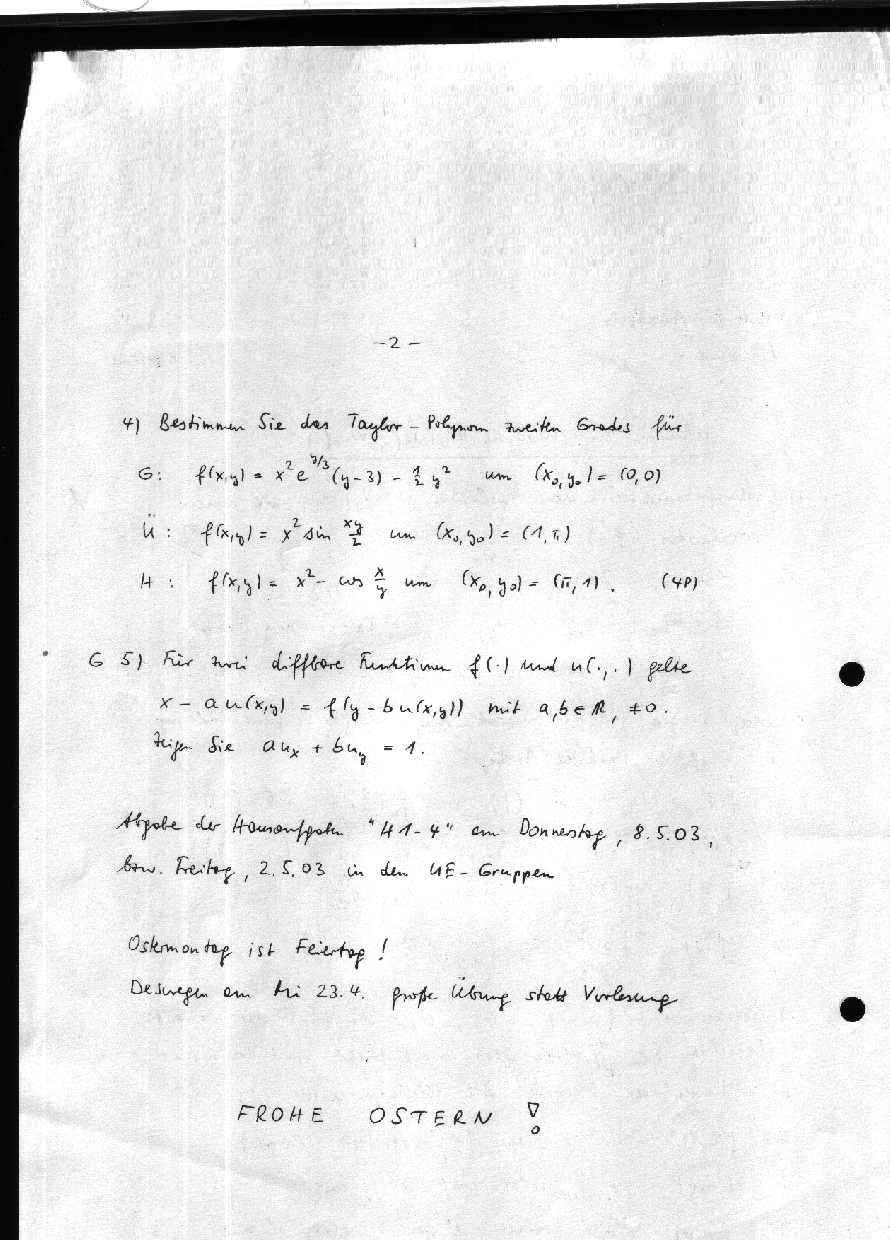 -2-
4) Bestimmen Sie das Taylor-Polynom zweiten Grades für
G: f(x,y) = x² e^{y/3} (y-3) - ½ y² um (x₀,y₀) = (0,0)
Ü: f(x,y) = x² sin xy/2 um (x₀,y₀) = (1,π)
H: f(x,y) = x² - cos x/y um (x₀,y₀) = (π,1). (4P)
G 5) Für zwei diffbare Funktionen f(·) und u(·,·) gelte
x - a u(x,y) = f(y - b u(x,y)) mit a,b ∈ ℝ, ≠0.
Zeigen Sie a uₓ + b u_y = 1.
Abgabe der Hausaufgaben "H1-4" am Donnerstag, 8.5.03,
bzw. Freitag, 2.5.03 in den UE-Gruppen
Ostermontag ist Feiertag!
Deswegen am Mi 23.4. große Übung statt Vorlesung
FROHE OSTERN!